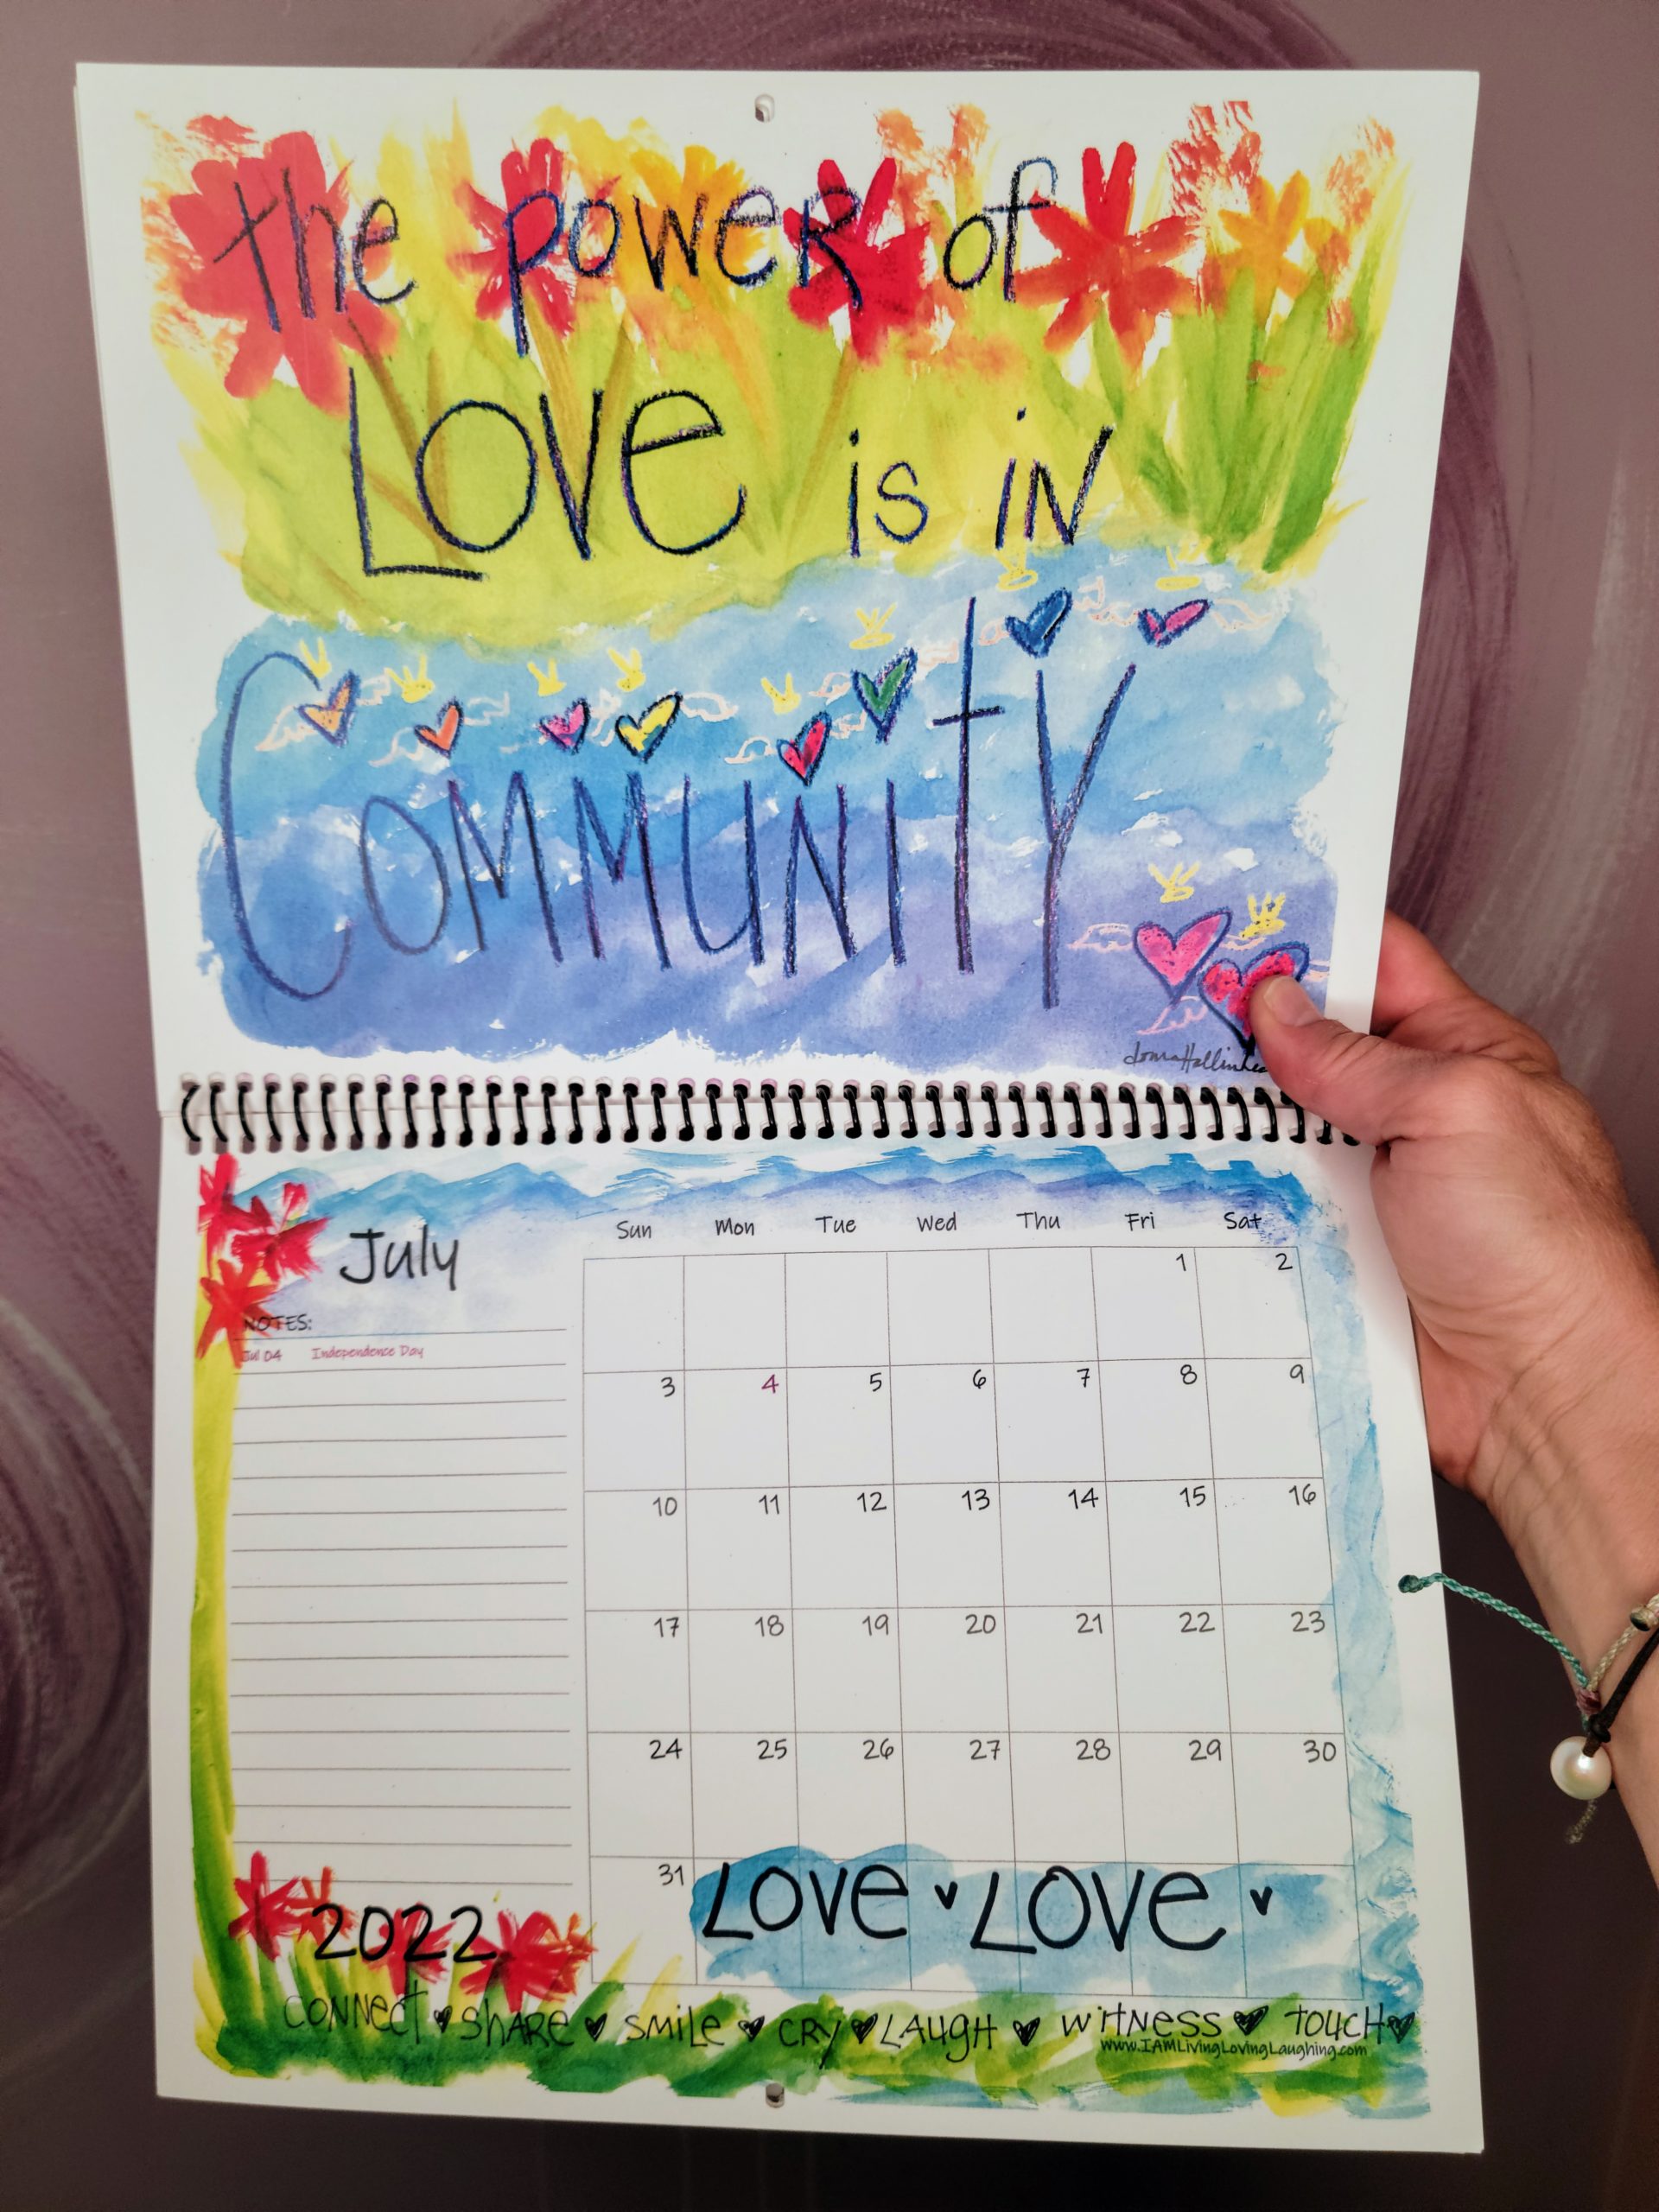 the power of
LOVe is iN
COMMUNitY
donnaHallinhea
July
NOTES:
Jul 04 Independence Day
Sun Mon Tue Wed Thu Fri Sat
1 2
3 4 5 6 7 8 9
10 11 12 13 14 15 16
17 18 19 20 21 22 23
24 25 26 27 28 29 30
31 LOVe LOVe
2022
CONNect shARe SMiLe CRY LAUGH WitNess toUCH
www.IAMLivingLovingLaughing.com